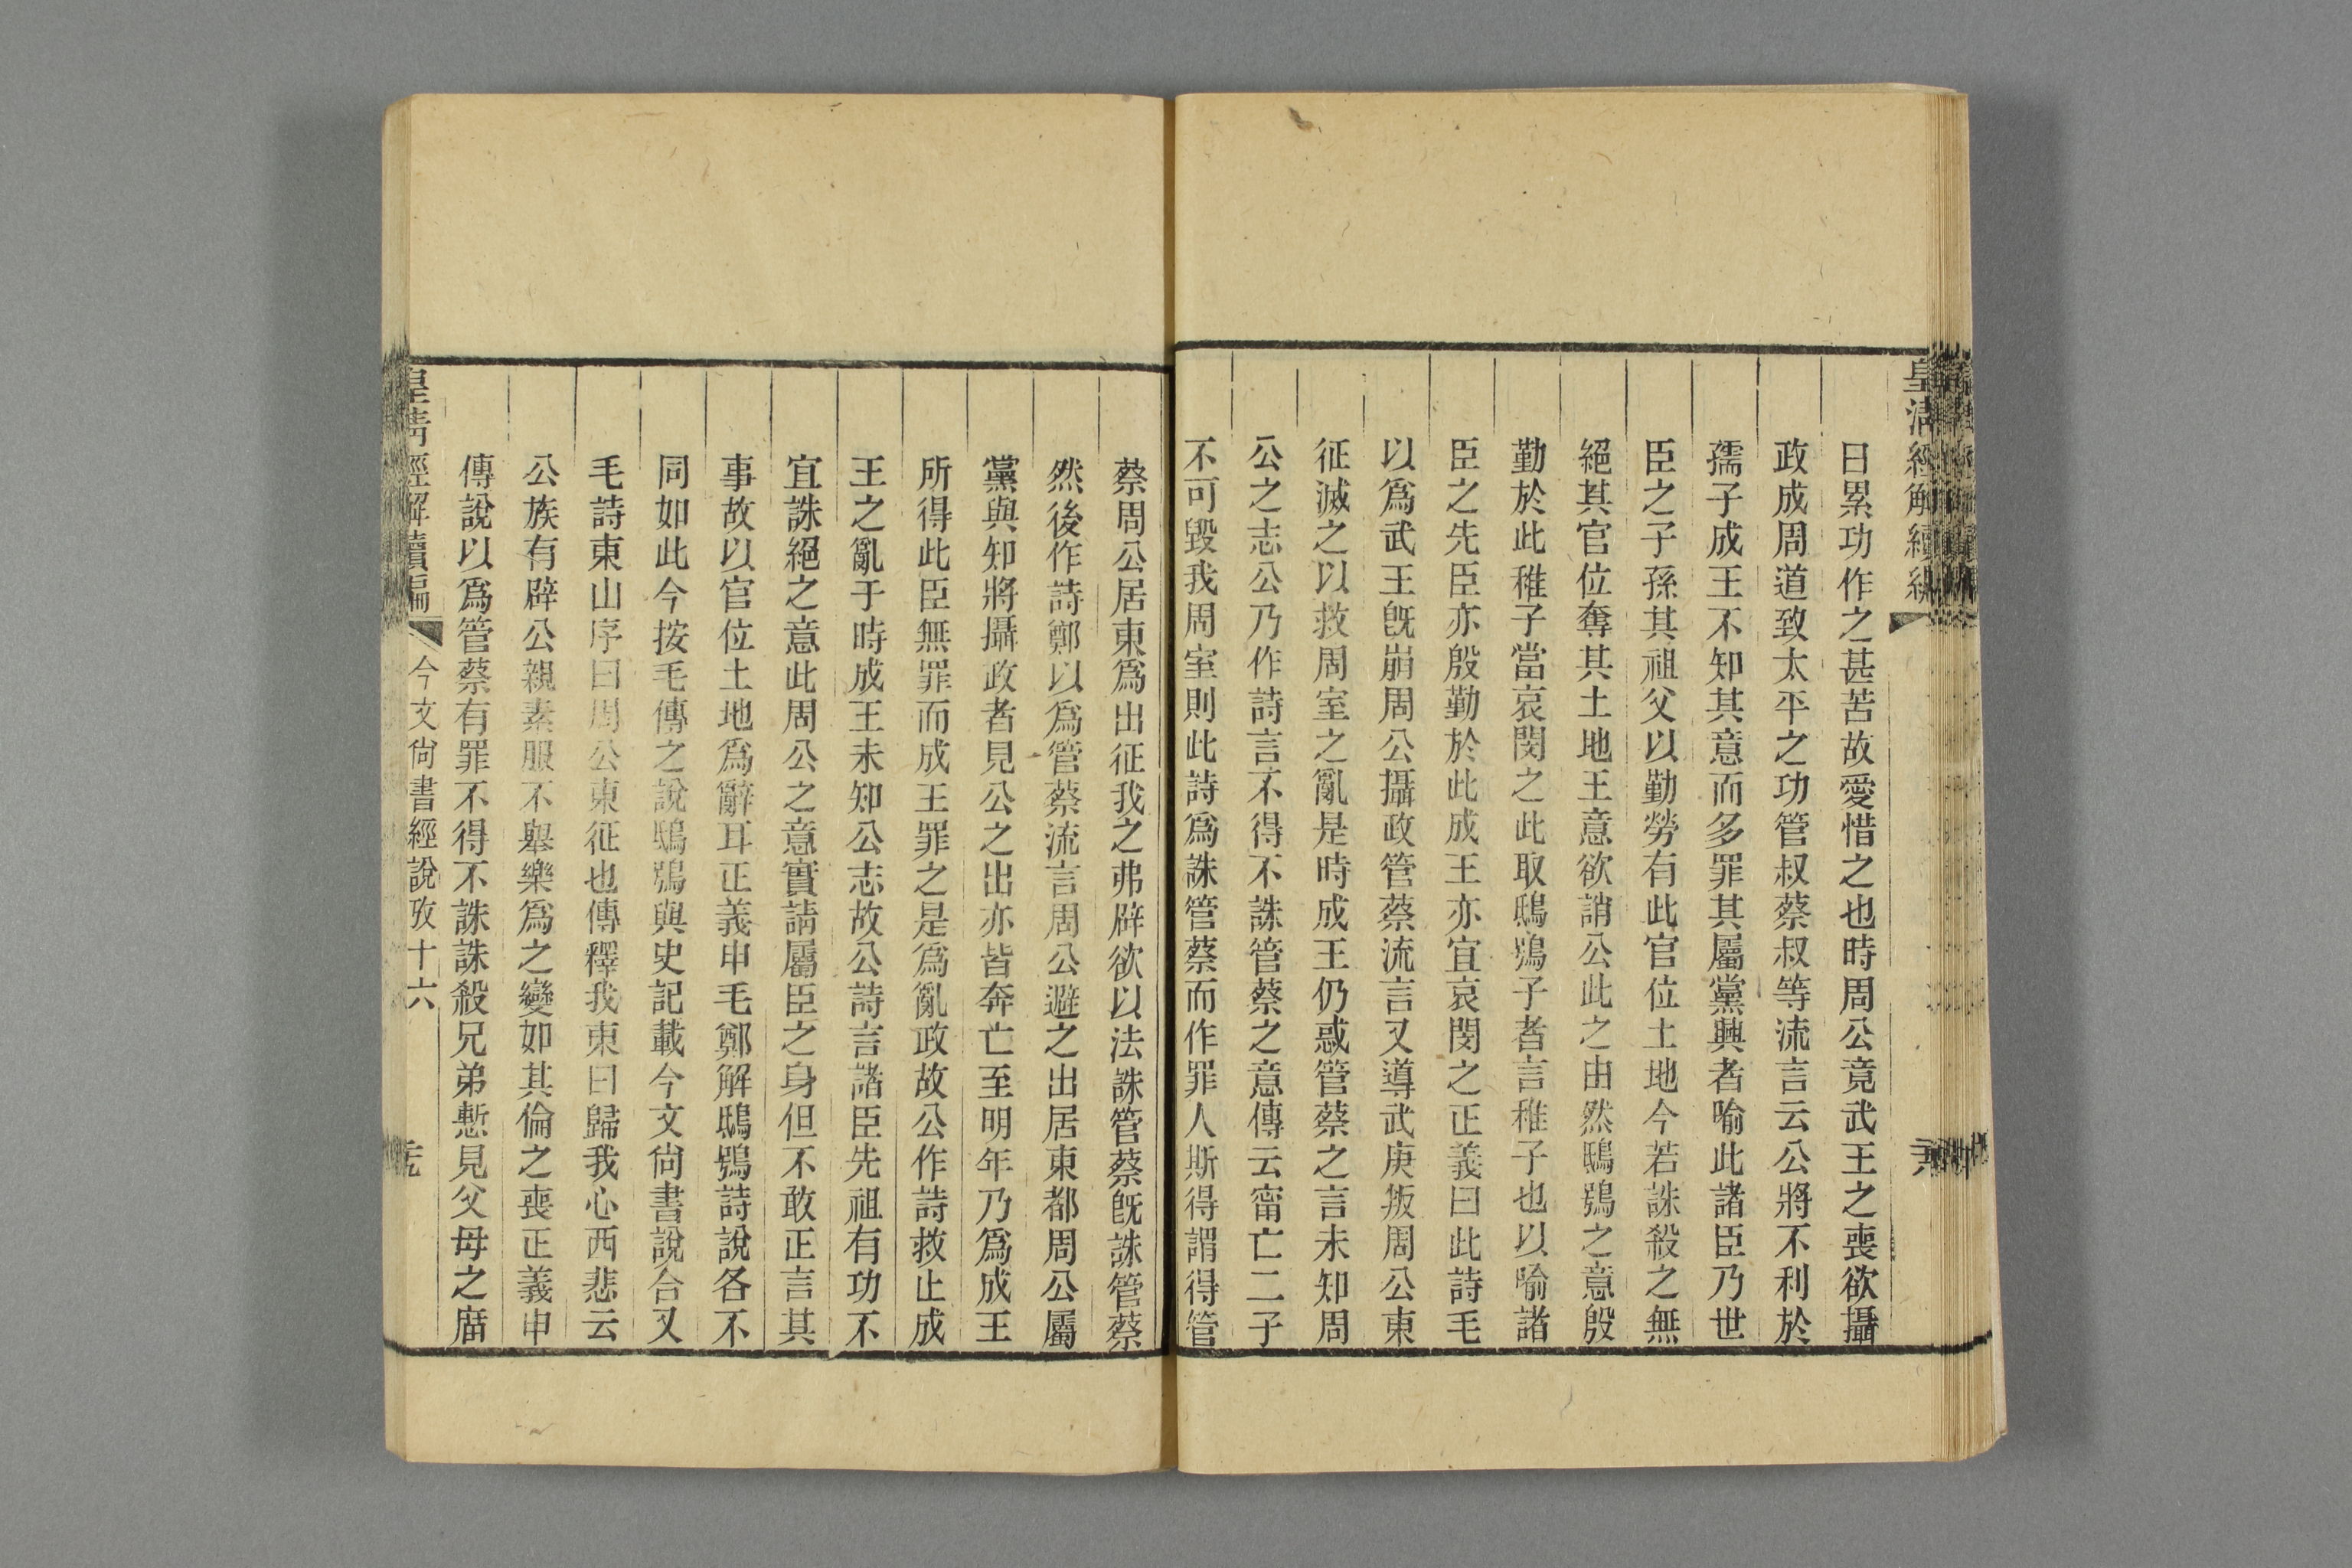 皇清經解續編
曰累功作之甚苦故愛惜之也時周公竟武王之喪欲攝
政成周道致太平之功管叔蔡叔等流言云公將不利於
孺子成王不知其意而多罪其屬黨興者喻此諸臣乃世
臣之子孫其祖父以勤勞有此官位土地今若誅殺之無
絕其官位奪其土地王意欲誚公此之由然鴟鴞之意殷
勤於此稚子當哀閔之此取鴟鴞子者言稚子也以喻諸
臣之先臣亦殷勤於此成王亦宜哀閔之正義曰此詩毛
以爲武王旣崩周公攝政管蔡流言又導武庚叛周公東
征滅之以救周室之亂是時成王仍惑管蔡之言未知周
公之志公乃作詩言不得不誅管蔡之意傳云甯亡二子
不可毀我周室則此詩爲誅管蔡而作罪人斯得謂得管
蔡周公居東爲出征我之弗辟欲以法誅管蔡旣誅管蔡
然後作詩鄭以爲管蔡流言周公避之出居東都周公屬
黨與知將攝政者見公之出亦皆奔亡至明年乃爲成王
所得此臣無罪而成王罪之是爲亂政故公作詩救止成
王之亂于時成王未知公志故公詩言諸臣先祖有功不
宜誅絕之意此周公之意實請屬臣之身但不敢正言其
事故以官位土地爲辭耳正義申毛鄭解鴟鴞詩說各不
同如此今按毛傳之說鴟鴞與史記載今文尙書說合又
毛詩東山序曰周公東征也傳釋我東曰歸我心西悲云
公族有辟公親素服不舉樂爲之變如其倫之喪正義申
傳說以爲管蔡有罪不得不誅誅殺兄弟慙見父母之庿
皇清經解續編
今文尙書經說攷十六